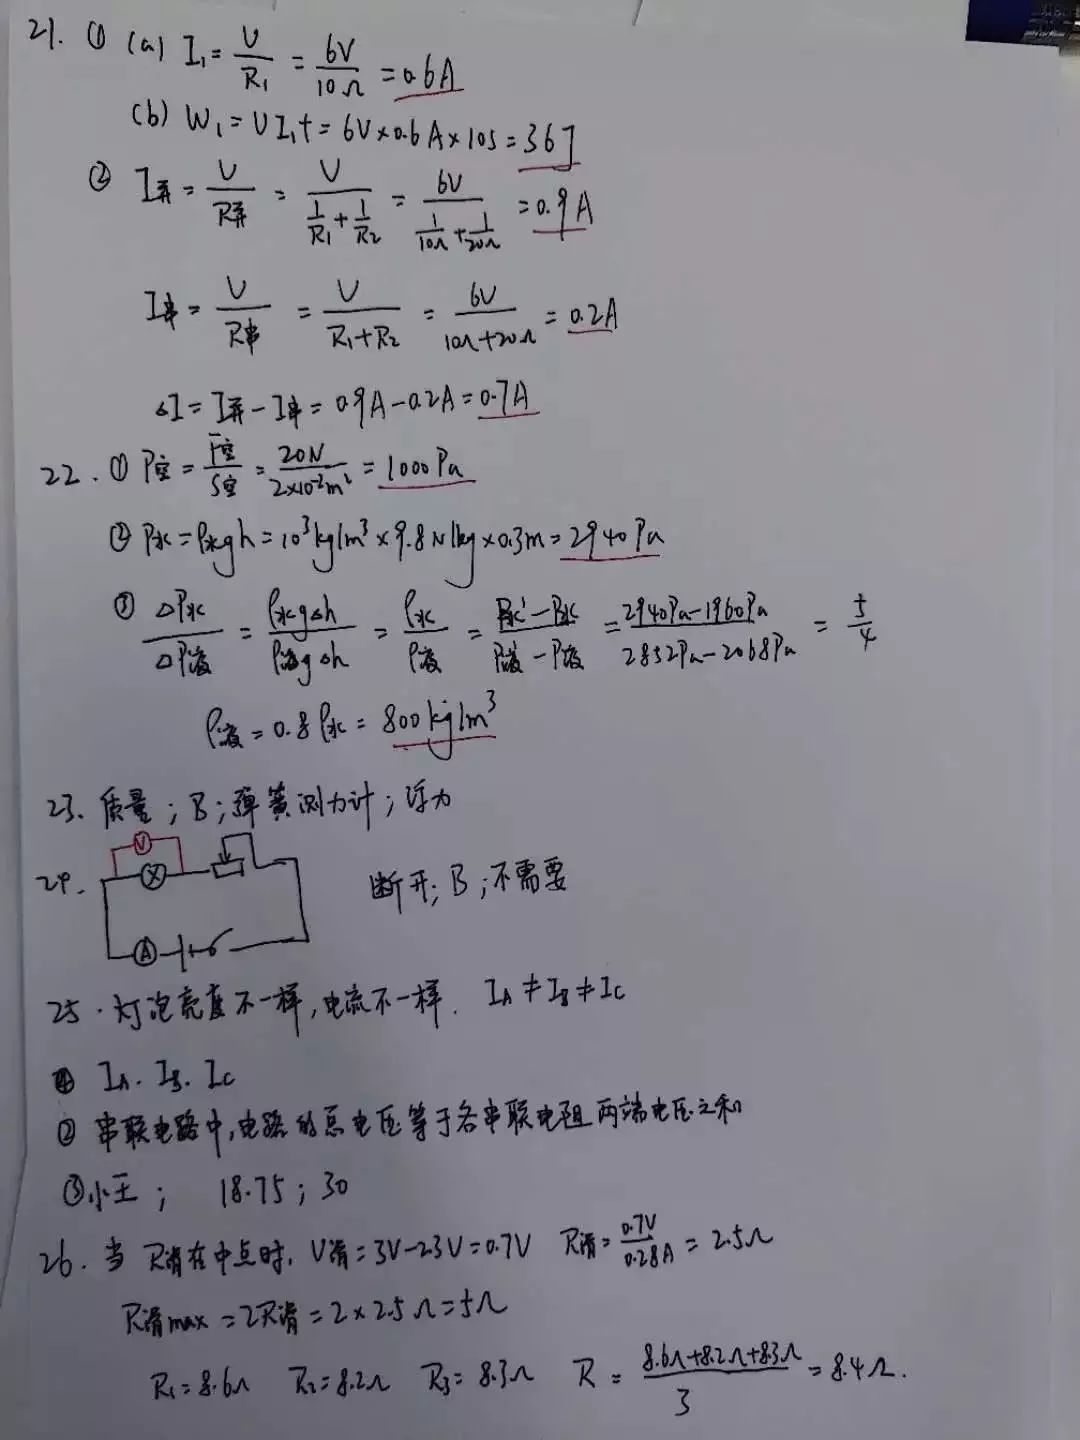 21. ① (a) I₁ = U/R₁ = 6V/10Ω = 0.6A
(b) W₁ = UI₁t = 6V×0.6A×10S = 36J
② I并 = U/R并 = U/(1/R₁ + 1/R₂) = 6V/(1/10Ω + 1/20Ω) = 0.9A
I串 = U/R串 = U/(R₁+R₂) = 6V/(10Ω+20Ω) = 0.2A
ΔI = I并 − I串 = 0.9A − 0.2A = 0.7A
22. ① P空 = F空/S空 = 20N/2×10⁻²m² = 1000Pa
② P水 = ρ水gh = 10³kg/m³ × 9.8N/kg × 0.3m = 2940Pa
③ ΔP水/ΔP液 = ρ水gΔh/ρ液gΔh = ρ水/ρ液 = (P水′−P水)/(P液′−P液) = (2940Pa−1960Pa)/(2852Pa−2068Pa) = 5/4
ρ液 = 0.8ρ水 = 800kg/m³
23. 质量；B；弹簧测力计；浮力
V
24. X 断开；B；不需要
A
25. 灯泡亮度不一样，电流不一样. IA ≠ IB ≠ IC
IA. IB. IC
② 串联电路中，电路的总电压等于各串联电阻两端电压之和
③ 小王； 18.75；30
26. 当R滑在中点时, U滑 = 3V−2.3V = 0.7V R滑 = 0.7V/0.28A = 2.5Ω
R滑max = 2R滑 = 2×2.5Ω = 5Ω
R₁ = 8.6Ω R₂ = 8.2Ω R₃ = 8.3Ω R = (8.6Ω+8.2Ω+8.3Ω)/3 = 8.4Ω.